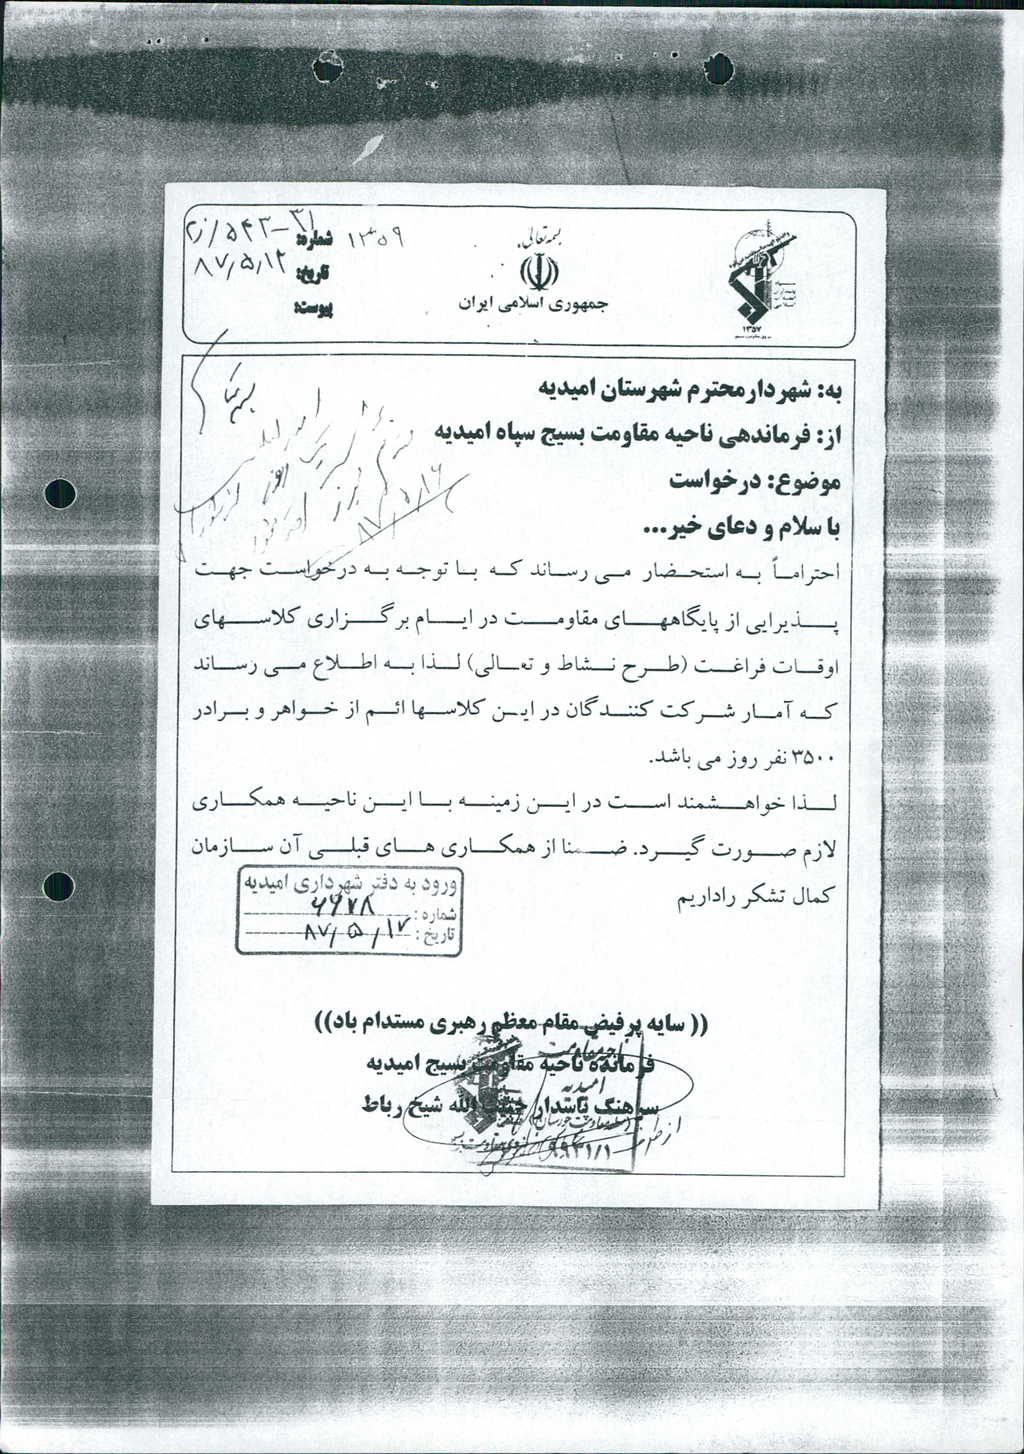 بسمه تعالی
جمهوری اسلامی ایران
۱۳۵۷
شماره:
تاریخ: ۸۷/۵/۱۲
پیوست:
به: شهردار محترم شهرستان امیدیه
از: فرماندهی ناحیه مقاومت بسیج سپاه امیدیه
موضوع: درخواست
با سلام و دعای خیر...
احتراماً به استحضار می رساند که با توجه به درخواست جهت
پذیرایی از پایگاههای مقاومت در ایام برگزاری کلاسهای
اوقات فراغت (طرح نشاط و تعالی) لذا به اطلاع می رساند
که آمار شرکت کنندگان در این کلاسها ائم از خواهر و برادر
۳۵۰۰ نفر روز می باشد.
لذا خواهشمند است در این زمینه با این ناحیه همکاری
لازم صورت گیرد. ضمنا از همکاری های قبلی آن سازمان
کمال تشکر راداریم
۸۷/۵/۱۶
ورود به دفتر شهرداری امیدیه
شماره:
تاریخ: ۸۷/۵/۱۷
(( سایه پرفیض مقام معظم رهبری مستدام باد))
فرمانده ناحیه مقاومت بسیج امیدیه
سرهنگ پاسدار الله شیخ رباط